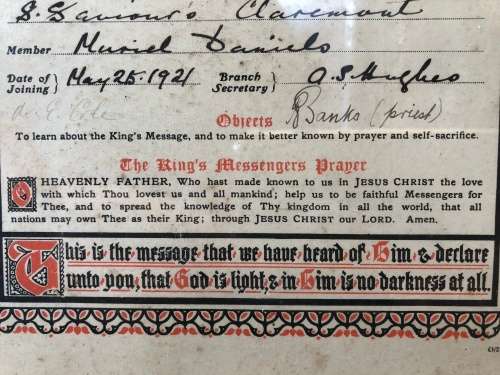 S. Saviour's Claremont
Member Muriel Daniels
Date of Joining } May 25. 1921 Branch Secretary } A. S. Hughes
Objects Banks (priest)
To learn about the King's Message, and to make it better known by prayer and self-sacrifice.
The King's Messengers Prayer
O HEAVENLY FATHER, Who hast made known to us in JESUS CHRIST the love
with which Thou lovest us and all mankind; help us to be faithful Messengers for
Thee, and to spread the knowledge of Thy kingdom in all the world, that all
nations may own Thee as their King; through JESUS CHRIST our LORD. Amen.
This is the message that we have heard of Him & declare
unto you, that God is light, & in Him is no darkness at all.